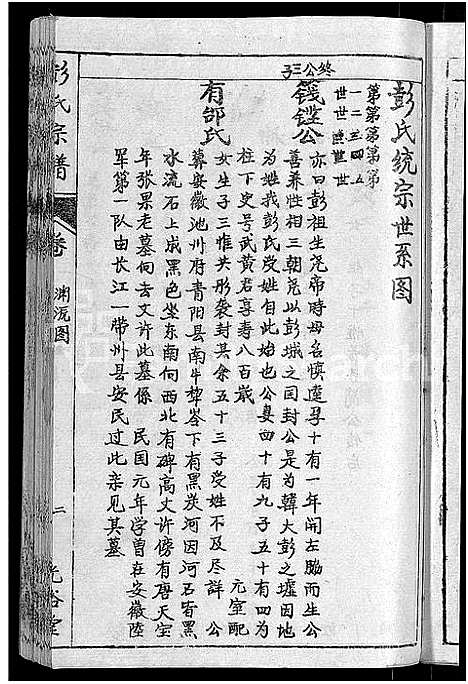 彭氏统宗世系图
第一世
第二世
第三世
第四世
第五世
终公三子
籛铿公
亦曰彭祖生尧帝時母名慎遠孕十有一年開左脇而生公
善养性相三朝尧以彭城之国封公是为韓大彭之墟因地
为姓我彭氏受姓自此始也公妻四十有九子五十有四为
柱下史号武黄君享寿八百歲 元室配
有邰氏
女生子三惟共形袭封其余五十三子受姓不及尽詳 公
葬安徽池州府青阳县南牛犂峇下有黑炭河因河石皆黑
水流石上成黑色坐东南向西北有碑高丈许傍有唐天宝
年张果老墓向去文许此墓係 民国元年学曾在安徽陸
军第一队由长江一带州县安民过此亲见其墓
彭氏宗谱
卷
渊流图
二
光裕堂